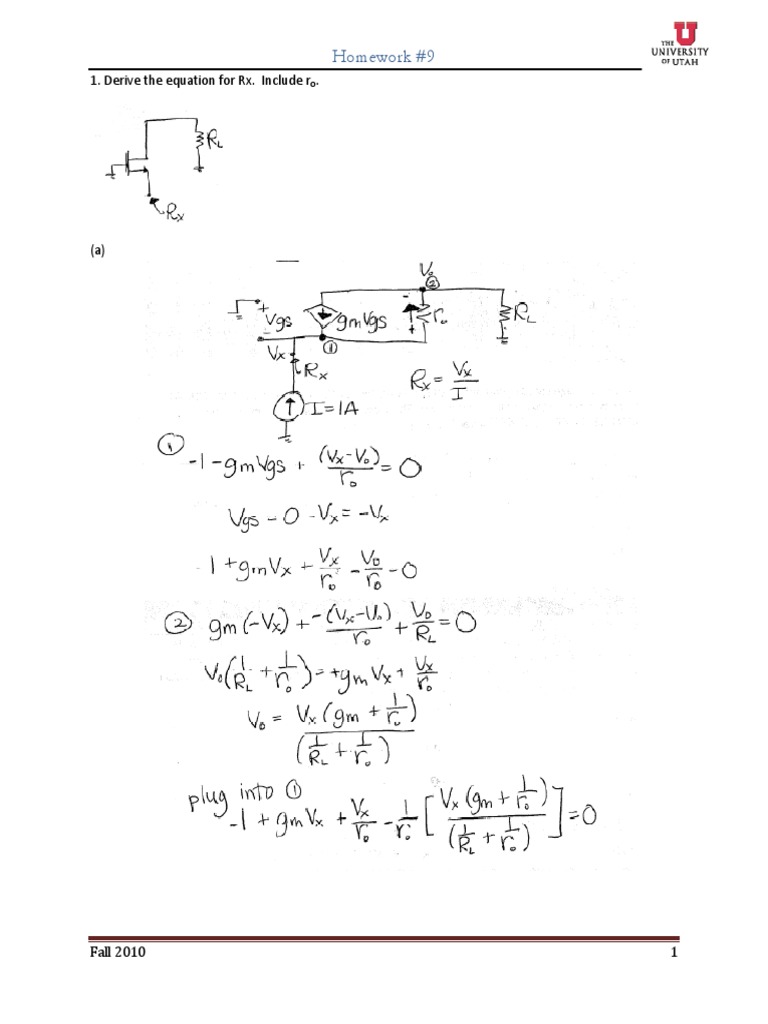 Homework #9
THE
UNIVERSITY
OF UTAH
1. Derive the equation for Rx. Include rₒ.
RL
Rx
(a)
Vo
②
+
Vgs
-
gmVgs
-
ro
+
RL
①
Vx
Rx
I=1A
Rx = Vx/I
① -1 - gmVgs + (Vx-Vo)/ro = 0
Vgs - 0 - Vx = -Vx
-1 + gmVx + Vx/ro - Vo/ro - 0
② gm(-Vx) + -(Vx-Vo)/ro + Vo/RL = 0
Vo(1/RL + 1/ro) = +gmVx + Vx/ro
Vo = Vx(gm + 1/ro)/(1/RL + 1/ro)
plug into ①
-1 + gmVx + Vx/ro - 1/ro [Vx(gm + 1/ro)/(1/RL + 1/ro)] = 0
Fall 2010 1